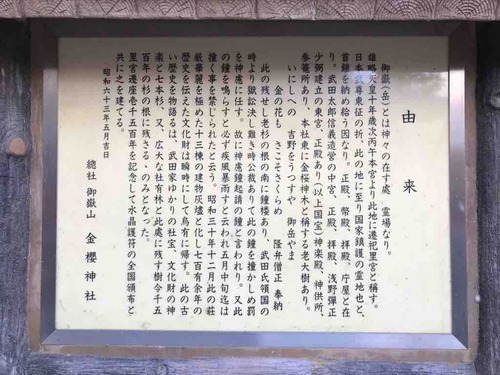 由来
御嶽(岳)とは神々の在す處、霊場なり。
雄略天皇十年歳次丙午本宮より此地に遷祀里宮と稱す。
日本武尊東征の折、此の地に至り国家鎮護の霊地也と、
首鎧を納め給う因なり。正殿、幣殿、拝殿、庁屋と在
り。武田太郎信義造営の中宮、正殿、拝殿、浅野弾正
少弼建立の東宮、正殿あり(以上国宝)神楽殿、神供所、
参籠所あり、本社東に金桜神木と稱する老大樹あり。
いにしへの 吉野をうつすや 御岳やま
金の花も さこそさくらめ 隆弁僧正 奉納
此の残せし老杉の根の南に鐘楼あり、武田氏領国の
時より獄訟決し難き時公裁ありて此の鐘を撞かしめ罰
を神慮に任す。故に神慮鐘起請の鐘と言われり。又此
の鐘を鳴らすと必ず疾風暴雨すと云われ五月中旬迄は
撞く事を禁じられたと云う。昭和三十年十二月此の荘
厳華麗を極めた十三棟の建物灰燼と化し七百有余年の
歴史を伝えた文化財は瞬時にして烏有に帰す。此の古
い歴史を物語るは、武田家ゆかりの社宝、文化財の神
楽と七本杉、又、広大な社有林と此處に残す樹令千五
百年の杉の根に残さる・のみとなった。
里宮遷座壱千五百年を記念して水晶護符の全国頒布と
共に之を建てる。
昭和六十三年五月吉日
總社 御嶽山 金櫻神社